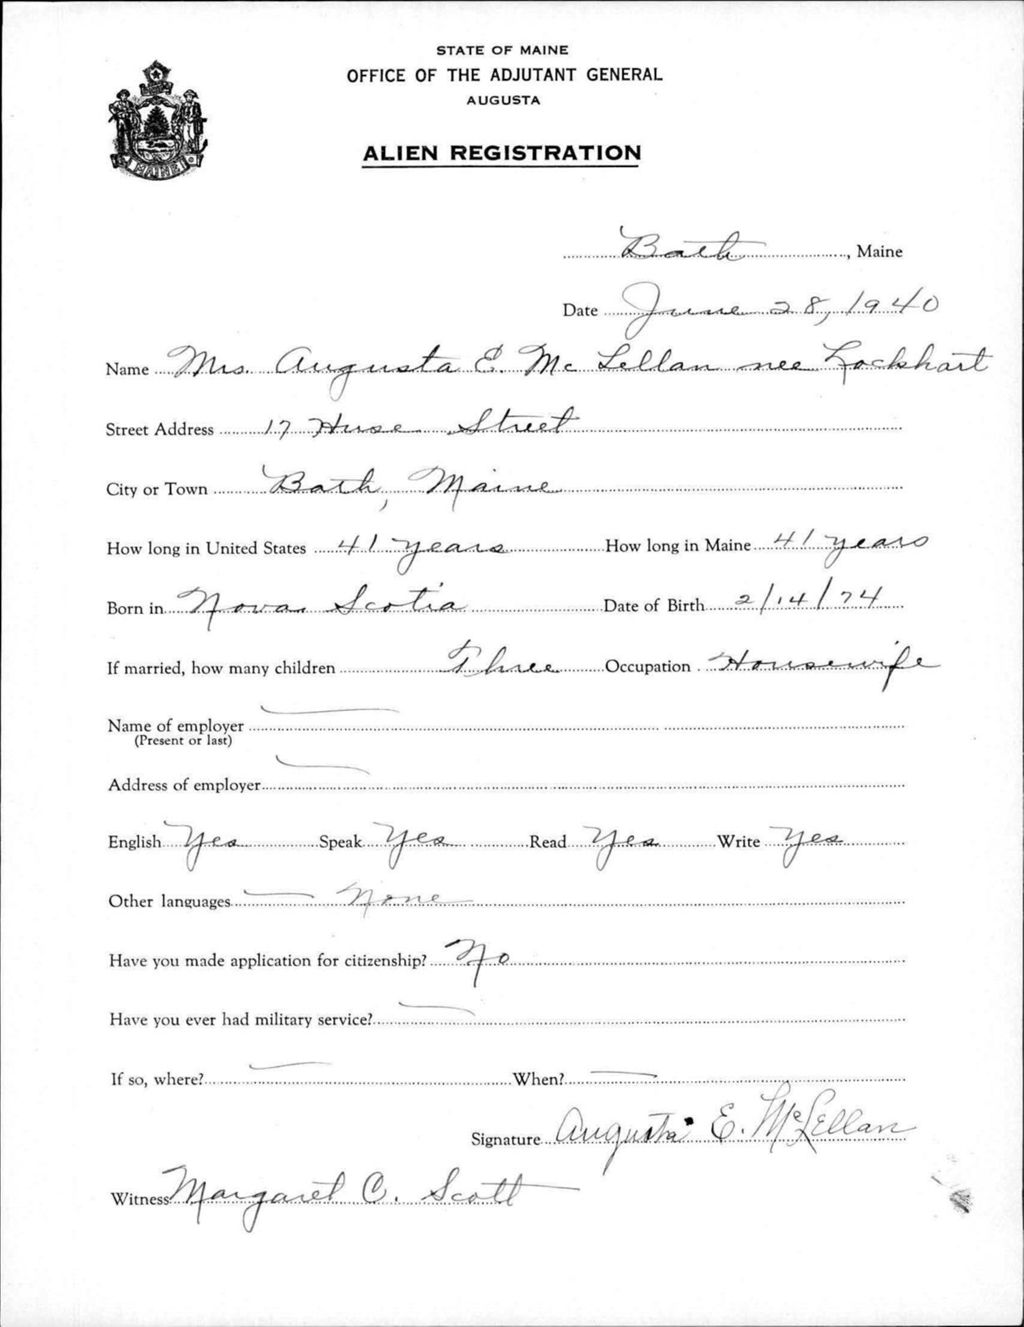 STATE OF MAINE
OFFICE OF THE ADJUTANT GENERAL
AUGUSTA
ALIEN REGISTRATION
MAINE
Bath, Maine
Date June 28, 1940
Name Mrs. Augusta E. Mc Lellan nee Lockhart
Street Address 17 Huse Street
City or Town Bath, Maine
How long in United States 41 years How long in Maine 41 years
Born in Nova Scotia Date of Birth 2/14/74
If married, how many children Three Occupation Housewife
Name of employer
(Present or last)
Address of employer
English Yes Speak Yes Read Yes Write Yes
Other languages None
Have you made application for citizenship? No
Have you ever had military service?
If so, where? When?
Signature Augusta E. McLellan
Witness Margaret C. Scott